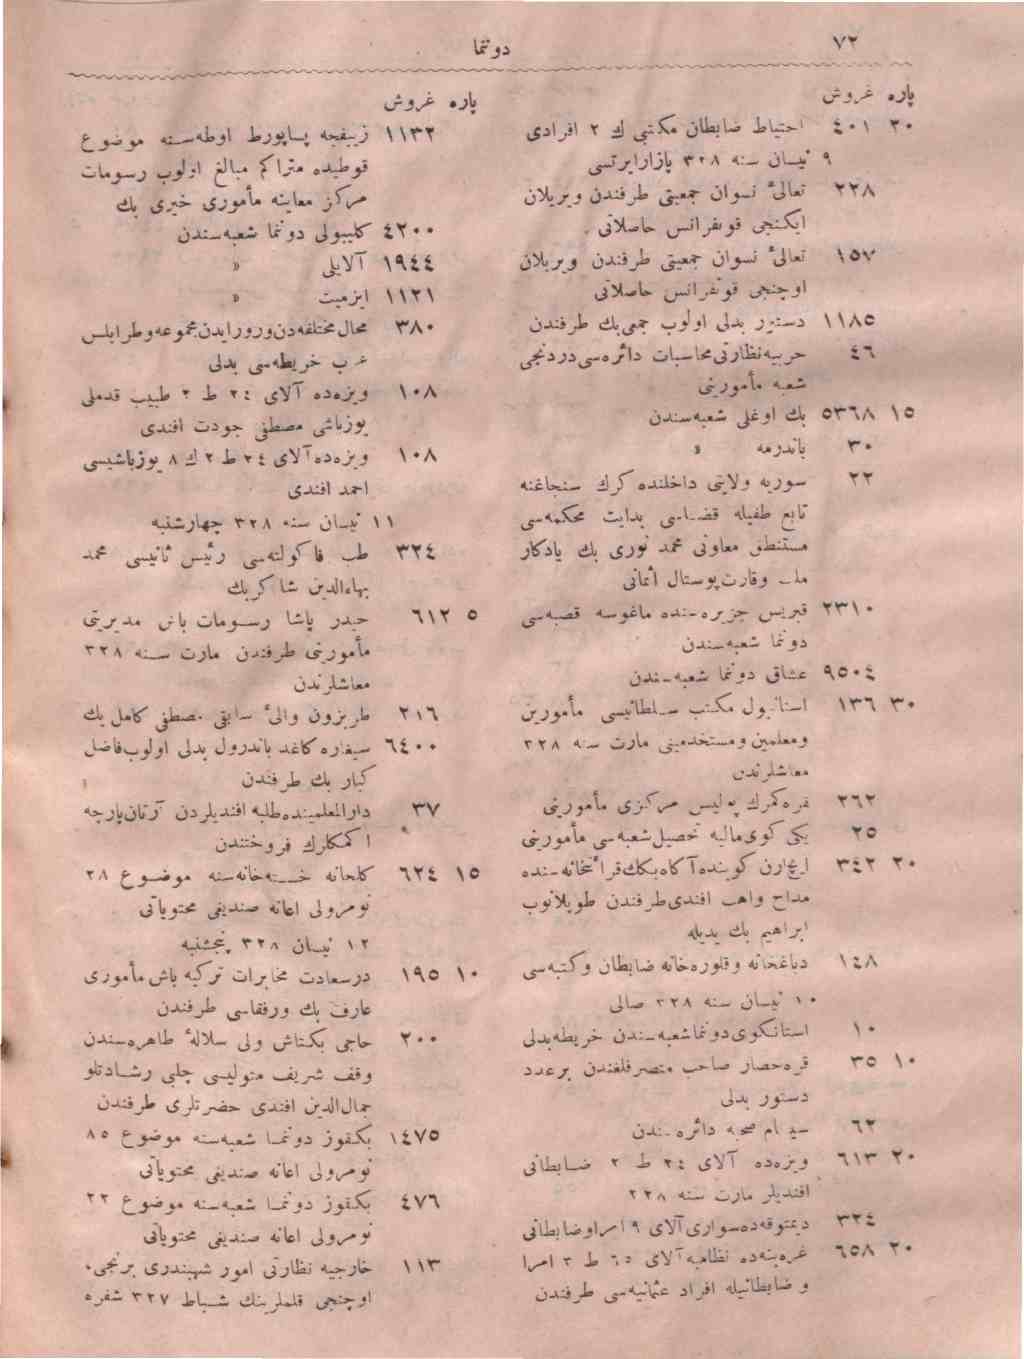 ٧٢
دونما
پاره غروش
٣٠ ٤٠١ احتیاط ضابطان مکتبی ك ٢ افرادی
٩ نیسان سنه ٣٢٨ پازارایرتسی
٢٢٨ تعالئ نسوان جمعیتی طرفندن ویریلان
ایکنجی قونفرانس حاصلاتی
١٥٧ تعالئ نسوان جمعیتی طرفندن ویریلان
اوچنجی قونفرانس حاصلاتی
١١٨٥ دستور بدلی اولوب جمعی بك طرفندن
٤٦ حربیه نظارتی محاسبات دائره سی دردنجی
شعبه مأمورینی
١٥ ٥٣٦٨ بك اوغلی شعبه سندن
٣٠ باندرمه »
٢٢ سوریه ولایتی داخلنده کرك سنجاغنه
تابع طفیله قضاسی بدایت محکمه سی
مستنطق معاونی محمد نوری بك یادکار
ملی وقارت پوستال اثمانی
٢٣١٠ قبریس جزیره سنده ماغوسه قصبه سی
دونما شعبه سندن
٩٥٠٤ عشاق دونما شعبه سندن
٣٠ ١٣٦ استانبول مکتب سلطانیسی مأمورین
ومعلمین ومستخدمینی مارت سنه ٣٢٨
معاشلرندن
٢٦٢ قره کمرك پولیس مرکزی مأمورینی
٢٥ یکی کوی مالیه تحصیل شعبه سی مأمورینی
٢٠ ٣٤٢ ایچ ارن کوینده آکاه بکك قرائتخانه سنده
مداح واهب افندی طرفندن طوپلانوب
ابراهیم بك یدیله
١٤٨ دباغخانه وقلوره خانه ضابطان وکتبه سی
١٠ نیسان سنه ٣٢٨ صالی
١٠ استانکوی دونما شعبه سندن خریطه بدلی
١٠ ٣٥ قره حصار صاحب متصرفلغندن برعدد
دستور بدلی
٦٢ سیام صحیه دائره سندن
٢٠ ٦١٣ ویزه ده آلای ٢٤ ط ٢ ضابطانی
افندیلر مارت سنه ٣٢٨
٣٢٤ دیمتوقه ده سواری آلای ٩ امرا وضابطانی
٢٠ ٦٥٨ غره بنه ده نظامیه آلای ٦٥ ط ٣ امرا
و ضابطانیله افراد عثمانیه سی طرفندن
پاره غروش
١١٣٢ زیبفجه پساپورط اوطه سنه موضوع
قوطیده متراکم مبالغ اولوب رسومات
مرکز معاینه مأموری خیری بك
٤٢٠٠ کلیبولی دونما شعبه سندن
١٩٤٤ آلایلی »
١١٢١ ازمیت »
٣٨٠ محال مختلفه دن ورود ایدن مجموعه وطرابلس
غرب خریطه سی بدلی
١٠٨ ویزه ده آلای ٢٤ ط ٢ طبیب قدملی
یوزباشی مصطفی جودت افندی
١٠٨ ویزه ده آلای ٢٤ ط ٢ ك ٨ یوزباشیسی
احمد افندی
١١ نیسان سنه ٣٢٨ چهارشنبه
٣٢٤ طب فاکولته سی رئیس ثانیسی محمد
بهاءالدین شاکر بك
٥ ٦١٢ حیدر پاشا رسومات باش مدیریتی
مأمورینی طرفندن مارت سنه ٣٢٨
معاشلرندن
٢١٦ طربزون والئ سابقی مصطفی کامل بك
٦٤٠٠ سیغاره کاغد باندرول بدلی اولوب فاضل
کبار بك طرفندن
٣٧ دارالمعلمینده طلبه افندیلردن آرتان پارچه
اکمکلرك فروختندن
١٥ ٦٢٤ کلحانه خسته خانه سنه موضوع ٢٨
نومرولی اعانه صندیغی محتویاتی
١٢ نیسان ٣٢٨ پنجشنبه
١٠ ١٩٥ درسعادت مخابرات ترکیه باش مأموری
عارف بك ورفقاسی طرفندن
٢٠٠ حاجی بکتاش ولی سلالهٔ طاهره سندن
وقف شریف متولیسی چلبی رشادتلو
جمال الدین افندی حضرتلری طرفندن
١٤٧٥ بکقوز دونما شعبه سنه موضوع ٨٥
نومرولی اعانه صندیغی محتویاتی
٤٧٦ بکقوز دونما شعبه سنه موضوع ٢٢
نومرولی اعانه صندیغی محتویاتی
١١٣ خارجیه نظارتی امور شهبندری برنجی،
اوچنجی قلملرینك شباط ٣٢٧ شفره